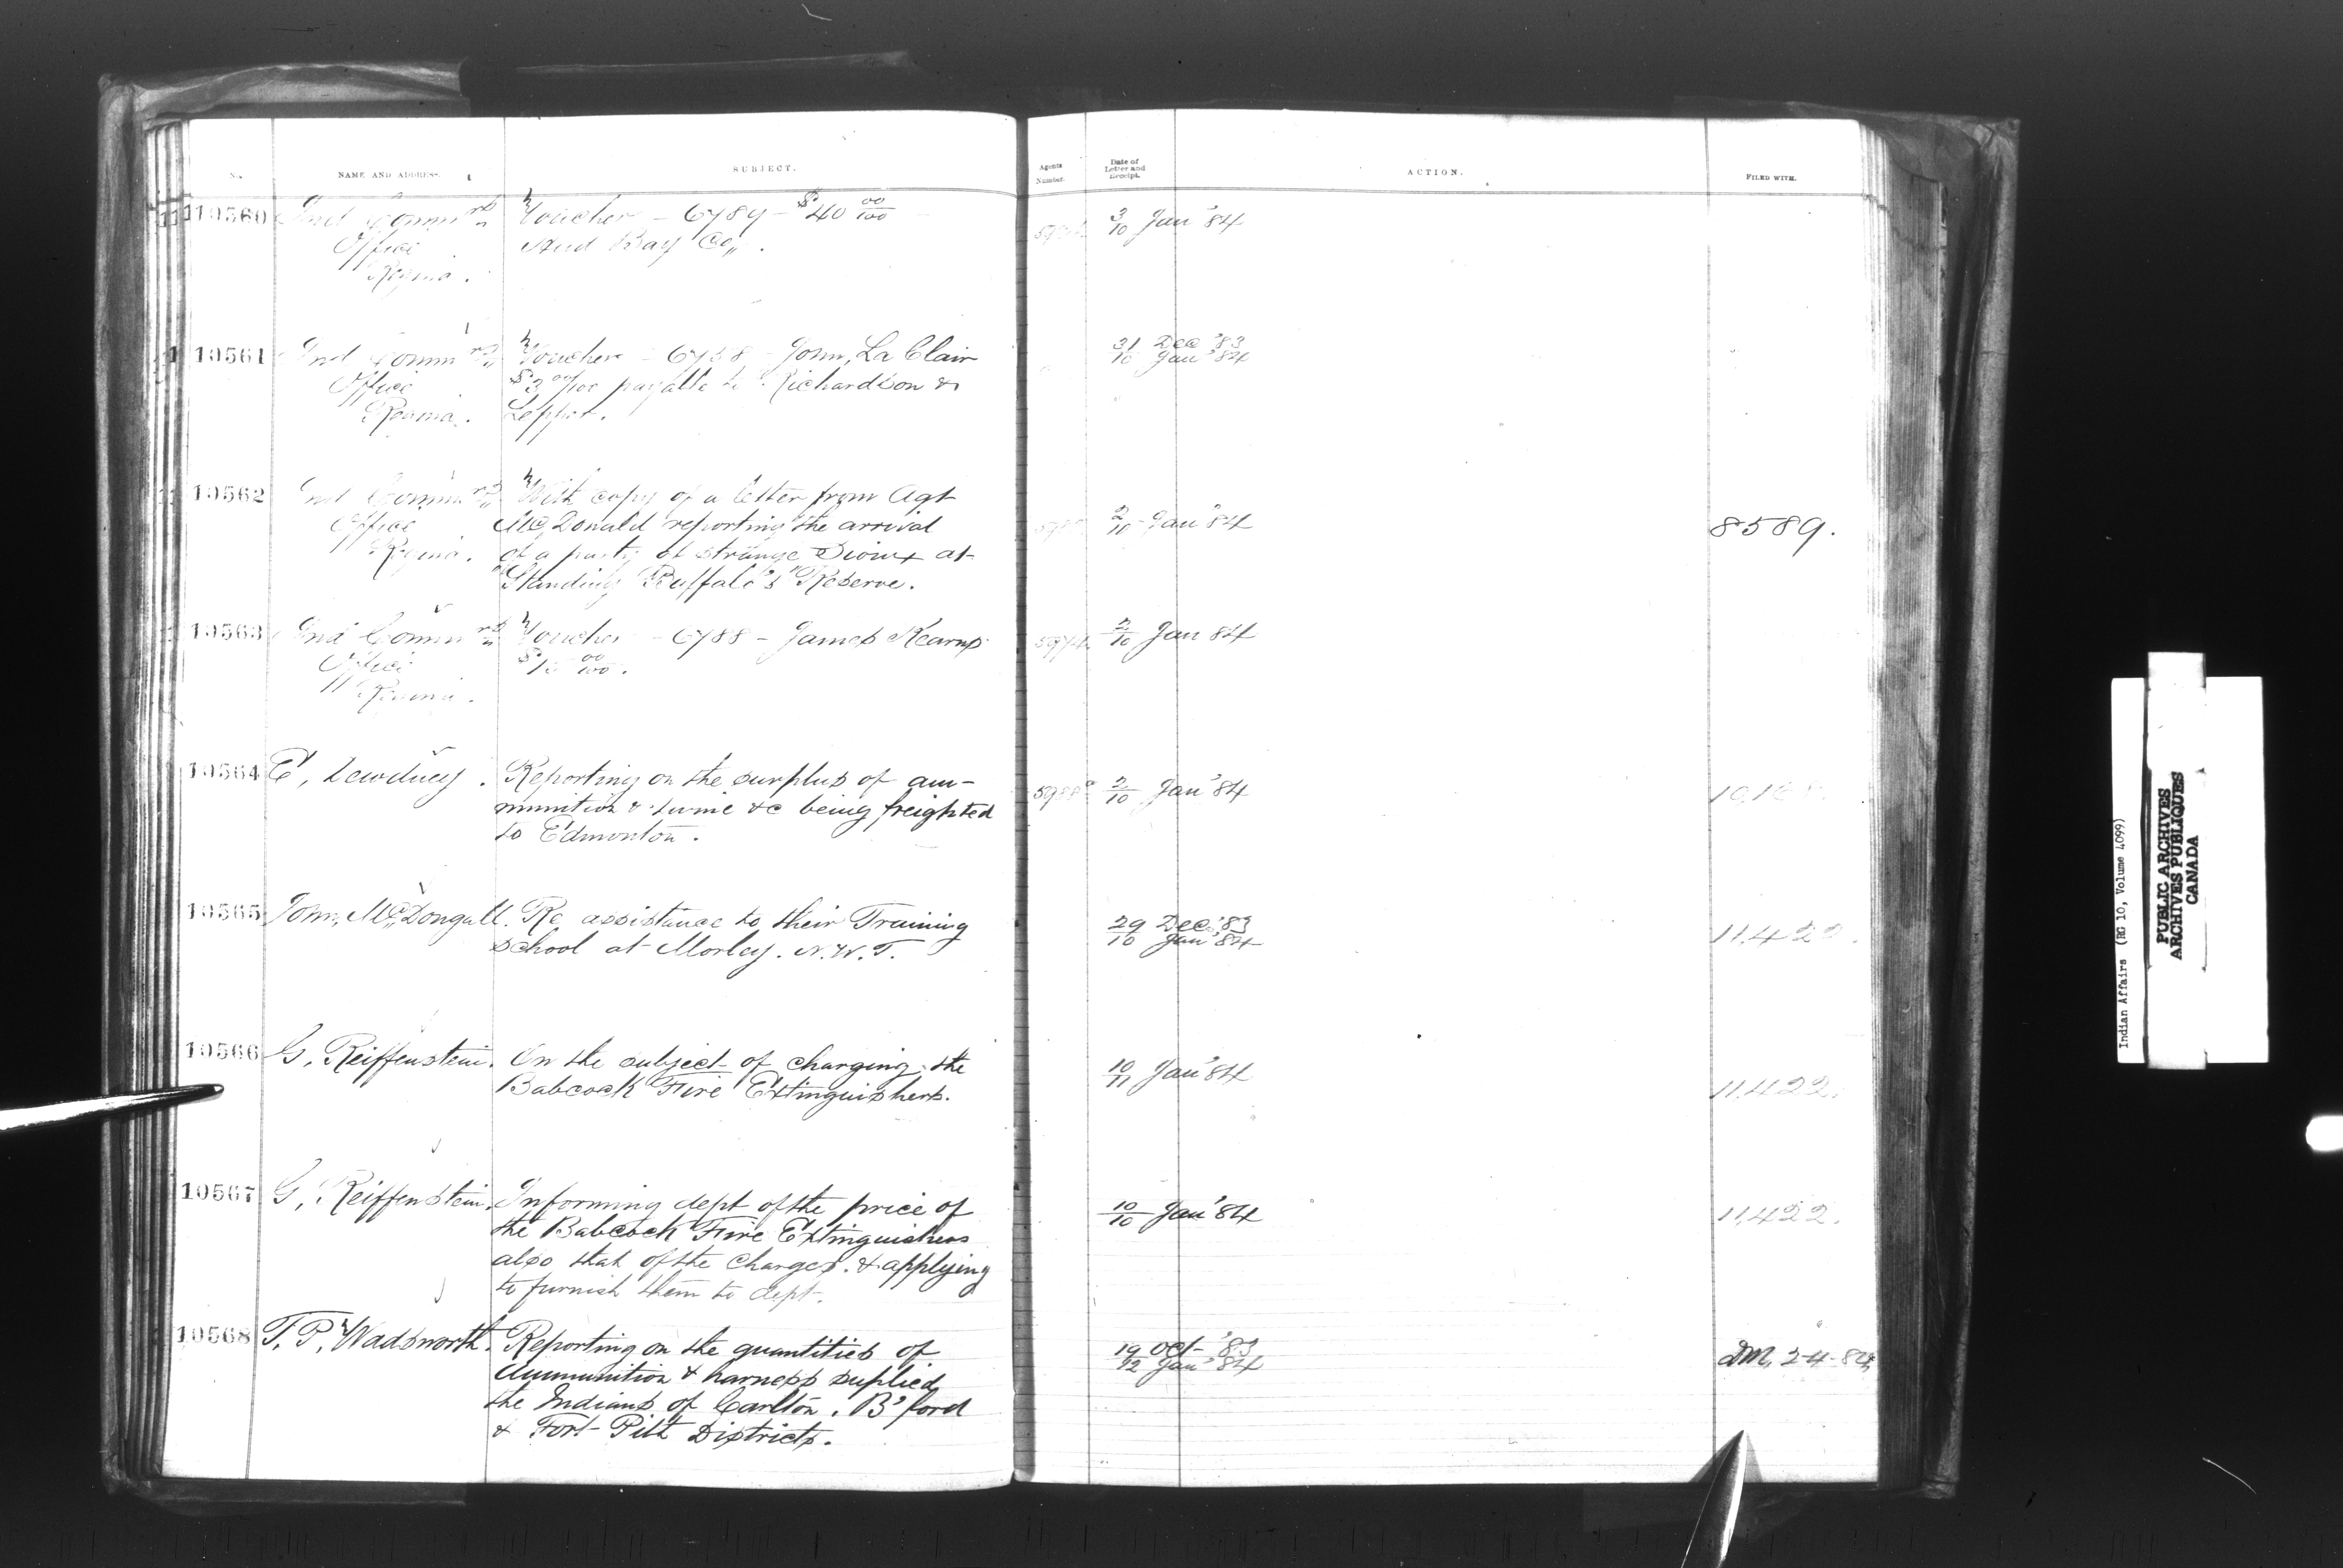 No. NAME AND ADDRESS. SUBJECT. Agents Number. Date of Letter and Receipt. ACTION. FILED WITH.
10560 Ind Comm rs Voucher - 6789 - $40 00/100 3/10 Jan '84
Office Hud Bay Co,, .
Regina.
10561 Ind Comm rs Voucher - 6758 - John, La Clair 31 Dec '83
Office $3 00/100 payable to Richardson & 10 Jan '84
Regina. Leppot.
10562 Ind Comm rs With copy of a letter from Agt
Office Mc Donald reporting the arrival 2/10 Jan '84 8589.
Regina. of a party of strange Sioux at
"Standing Buffalo's" Reserve.
10563 Ind Comm rs Voucher - 6788 - James Kearns 2/10 Jan 84
Office $15 00/100.
Regina.
10564 E, Dewdney. Reporting on the surplus of am-
munition & twine &c being freighted 2/10 Jan '84
to Edmonton.
10565 John, Mc,,Dougall. Re assistance to their Training 29 Dec '83
school at Morley. N.W.T. 10 Jan '84 11,422.
10566 G, Reiffenstein. On the subject of charging the 10/11 Jan '84
Babcock Fire Extinguishers. 11,422.
10567 G, Reiffenstein. Informing dept of the price of 10/10 Jan '84 11,422.
the Babcock Fire Extinguishers
also that of the charges. & applying
to furnish them to dept.
10568 T, P, Wadsworth. Reporting on the quantities of 19 Oct '83
Ammunition & harness suplied 12 Jan '84 DM, 2-4-84
the Indians of Carlton, B'ford
& Fort Pitt Districts.
Indian Affairs (RG 10, Volume 4099)
PUBLIC ARCHIVES
ARCHIVES PUBLIQUES
CANADA